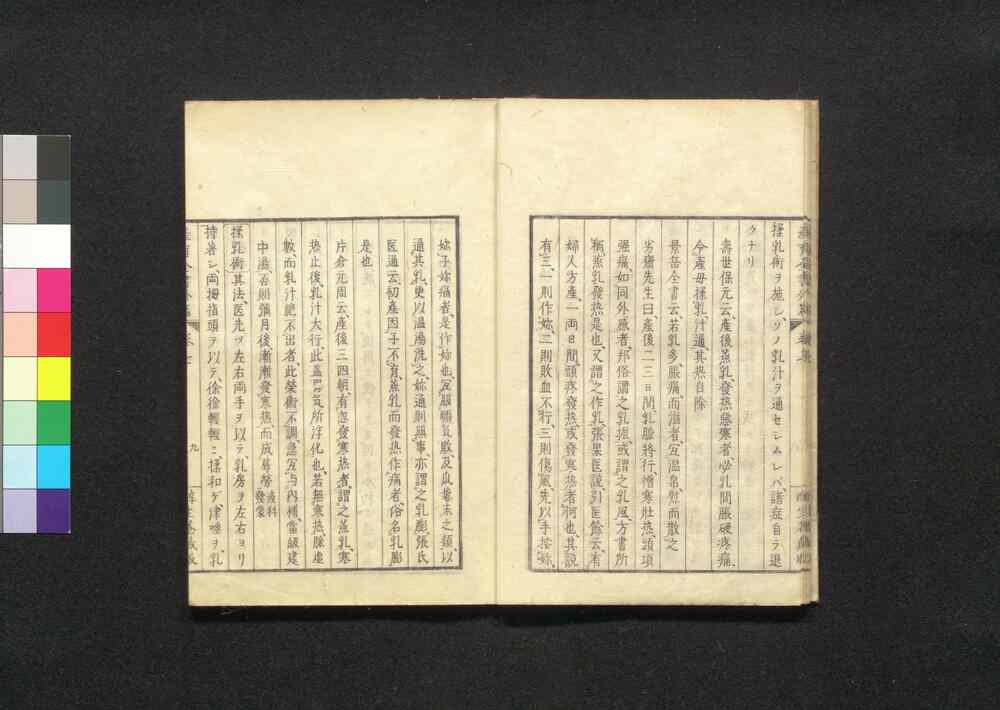 揉乳術ヲ施シ、ソノ乳汁ヲ通セシムレバ、諸症自ラ退
クナリ
壽世保元云、産後蒸乳發熱惡寒者、必乳間脹硬疼痛、
令産母揉乳汁通、其熱自除
景岳全書云、若乳多脹痛而溢者、宜溫帛熨而散之
劣齋先生曰、産後二三日間、乳脈將行、憎寒壯熱、頭項
強痛、如同外感者、邦俗謂之乳振、或謂之乳風、方書所
稱蒸乳發熱是也、又謂之作乳、張杲医説引医餘云、有
婦人方産、一両日間、頭疼發熱、或發寒熱者何也、其説
有三、一則作妳、二則敗血不行、三則傷風、先以手按妳、
妳子妳痛者、是作妳也、宜服順氣散及瓜蔞末之類、以
通其乳、更以溫湯洗之、妳通則無事、亦謂之乳膨、張氏
医通云、初産因子不育、蒸乳而發熱作痛者、俗名乳膨
是也
片倉元周云、産後三四朝、有忽發寒熱者、謂之蒸乳、寒
熱止後、乳汁大行、此蓋胃気所浮化也、若無寒熱、脈虛
數、而乳汁絶不出者、此榮衛不調、急宜与内補當歸建
中湯、否則彌月後漸漸發寒熱而成蓐勞産科發蒙
揉乳術、其法医先ツ左右両手ヲ以テ、乳房ヲ左右ヨリ
持著シ、両拇指頭ヲ以テ、徐徐輕輕ニ揉和ゲ、津唾ヲ、乳
九